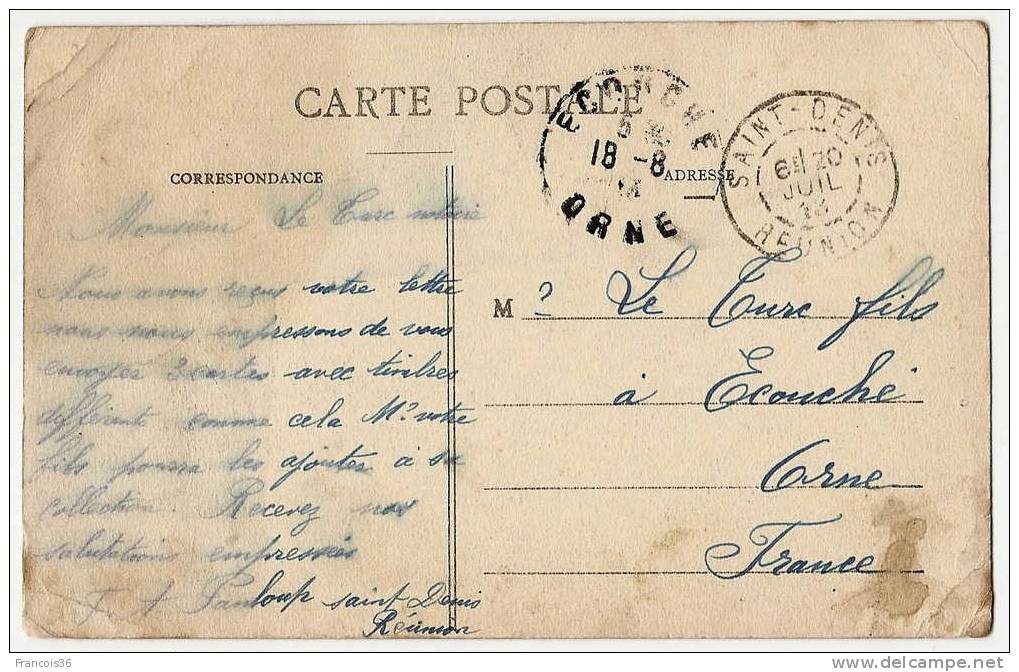 CARTE POSTALE
CORRESPONDANCE
ADRESSE
ECOUCHE
18 -8
ORNE
SAINT-DENIS
JUIL
REUNION
Monsieur Le Turc notaire
Nous avons reçus votre lettre
nous nous empressons de vous
envoyer 3 cartes avec timbres
différent comme cela Mr votre
fils pourra les ajouter à sa
collection. Recevez nos
salutations empressées
saint Denis
Réunion
Mr Le Turc fils
à Ecouché
Orne
France
Francois36
delcampe.net